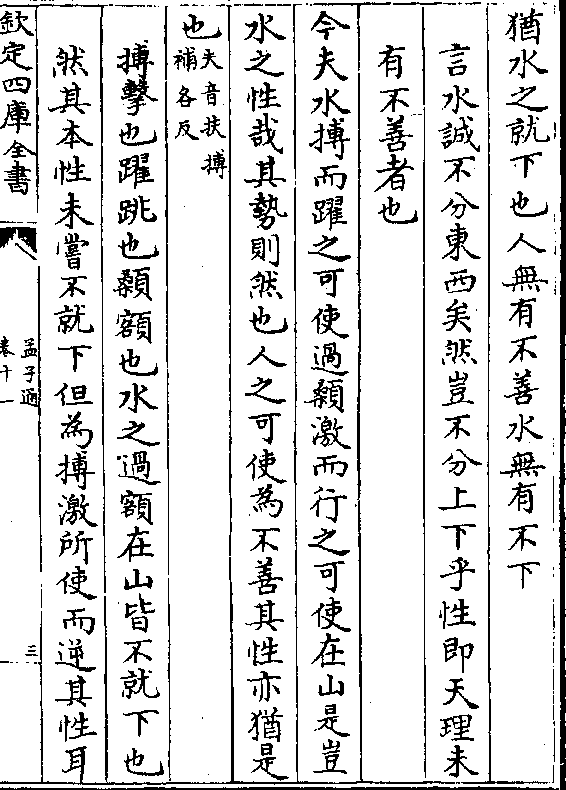 猶水之就下也人無有不善水無有不下
言水誠不分東西矣然豈不分上下乎性即天理未
有不善者也
今夫水搏而躍之可使過顙激而行之可使在山是豈
水之性哉其勢則然也人之可使為不善其性亦猶是
也夫音扶搏
補各反
搏擊也躍跳也顙額也水之過額在山皆不就下也
然其本性未嘗不就下但為搏激所使而逆其性耳
欽定四庫全書
孟子通
卷十一
三